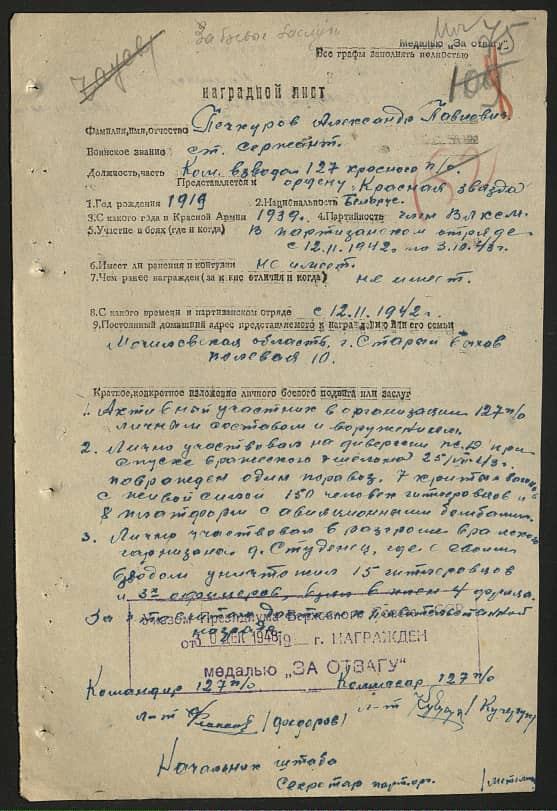 За боевые заслуги
75
Медалью „За отвагу"
Все графы заполнять полностью
наградной лист
Фамилия, имя, отчество Печкуров Александр Павлович
Воинское звание ст. сержант.
Должность, часть Ком. взвода 127 краснозн. п/о.
Представляется к ордену „Красная звезда
1.Год рождения 1919 2.Национальность Беларус.
3.С какого года в Красной Армии 1939. 4.Партийность член ВЛКСМ.
5.Участие в боях (где и когда) В партизанском отряде
с 12.11.1942 г. по 3.10.43г.
6.Имеет ли ранения и контузии не имеет.
7.Чем ранее награжден (за какие отличия и когда) не имеет.
8.С какого времени в партизанском отряде с 12.11.1942 г.
9.Постоянный домашний адрес представляемого к награждению и его семьи
Могилевская область, г. Старый Быхов
полевая 10.
Краткое, конкретное изложение личного боевого подвига или заслуг
1. Активный участник в организации 127 п/о
личным составом и вооружением.
2. Лично участвовал на диверсии при
спуске вражеского эшелона 25/VII 43г.
поврежден один паровоз, 7 крытых вагонов
с живой силой 150 человек гитлеровцев и
8 платформ с авиационными бомбами.
3. Лично участвовал в разгроме вражеского
гарнизона д. Студенец, где с своим
взводом уничтожил 15 гитлеровцев
За достоин правительственной
награды
Указом Президиума Верховного Совета СССР
от 30 ДЕК 1948 19 г. НАГРАЖДЕН
медалью „ЗА ОТВАГУ"
Командир 127 п/о Комиссар 127 п/о
л-т (Федоров) л-т
Начальник штаба
Секретар парторг.